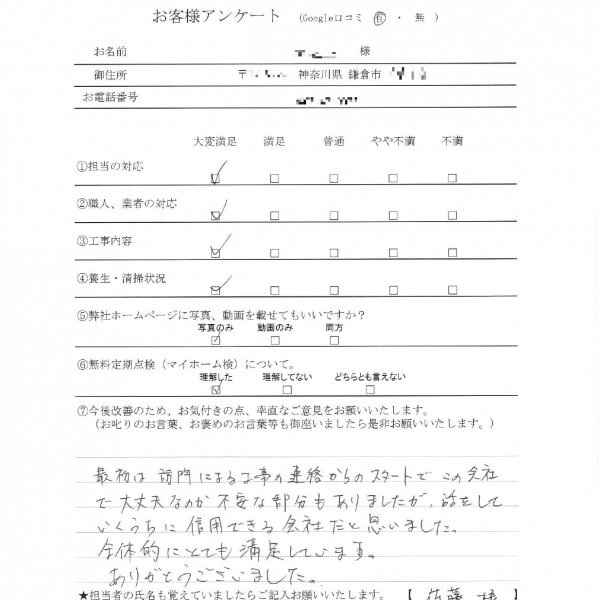 お客様アンケート (Google口コミ 有 ・ 無 )
お名前 様
御住所 〒 神奈川県 鎌倉市
お電話番号
大変満足 満足 普通 やや不満 不満
①担当の対応
②職人、業者の対応
③工事内容
④養生・清掃状況
⑤弊社ホームページに写真、動画を載せてもいいですか？
写真のみ 動画のみ 両方
⑥無料定期点検（マイホーム検）について。
理解した 理解してない どちらとも言えない
⑦今後改善のため、お気付きの点、率直なご意見をお願いいたします。
（お叱りのお言葉、お褒めのお言葉等も御座いましたら是非お願いします。）
最初は 訪門による工事の連絡からのスタートで この会社
で大丈夫なのか 不安な部分もありましたが、話をして
いくうちに 信用できる会社だと思いました。
全体的にとても 満足しています。
ありがとうございました。
★担当者の氏名も覚えていましたらご記入お願いします。 【 佐藤 様 】